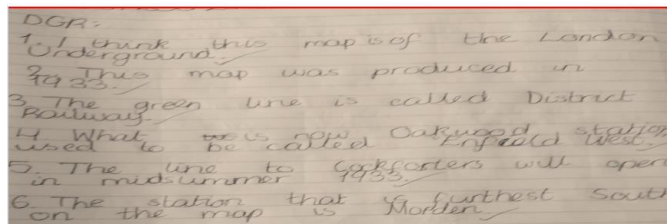 DGR:
1. I think this map is of the London
Underground.
2. This map was produced in
1933.
3. The green line is called District
Railway.
4. What is now Oakwood station
used to be called Enfield West.
5. The line to Cockfosters will open
in midsummer 1933.
6. The station that is furthest South
on the map is Morden